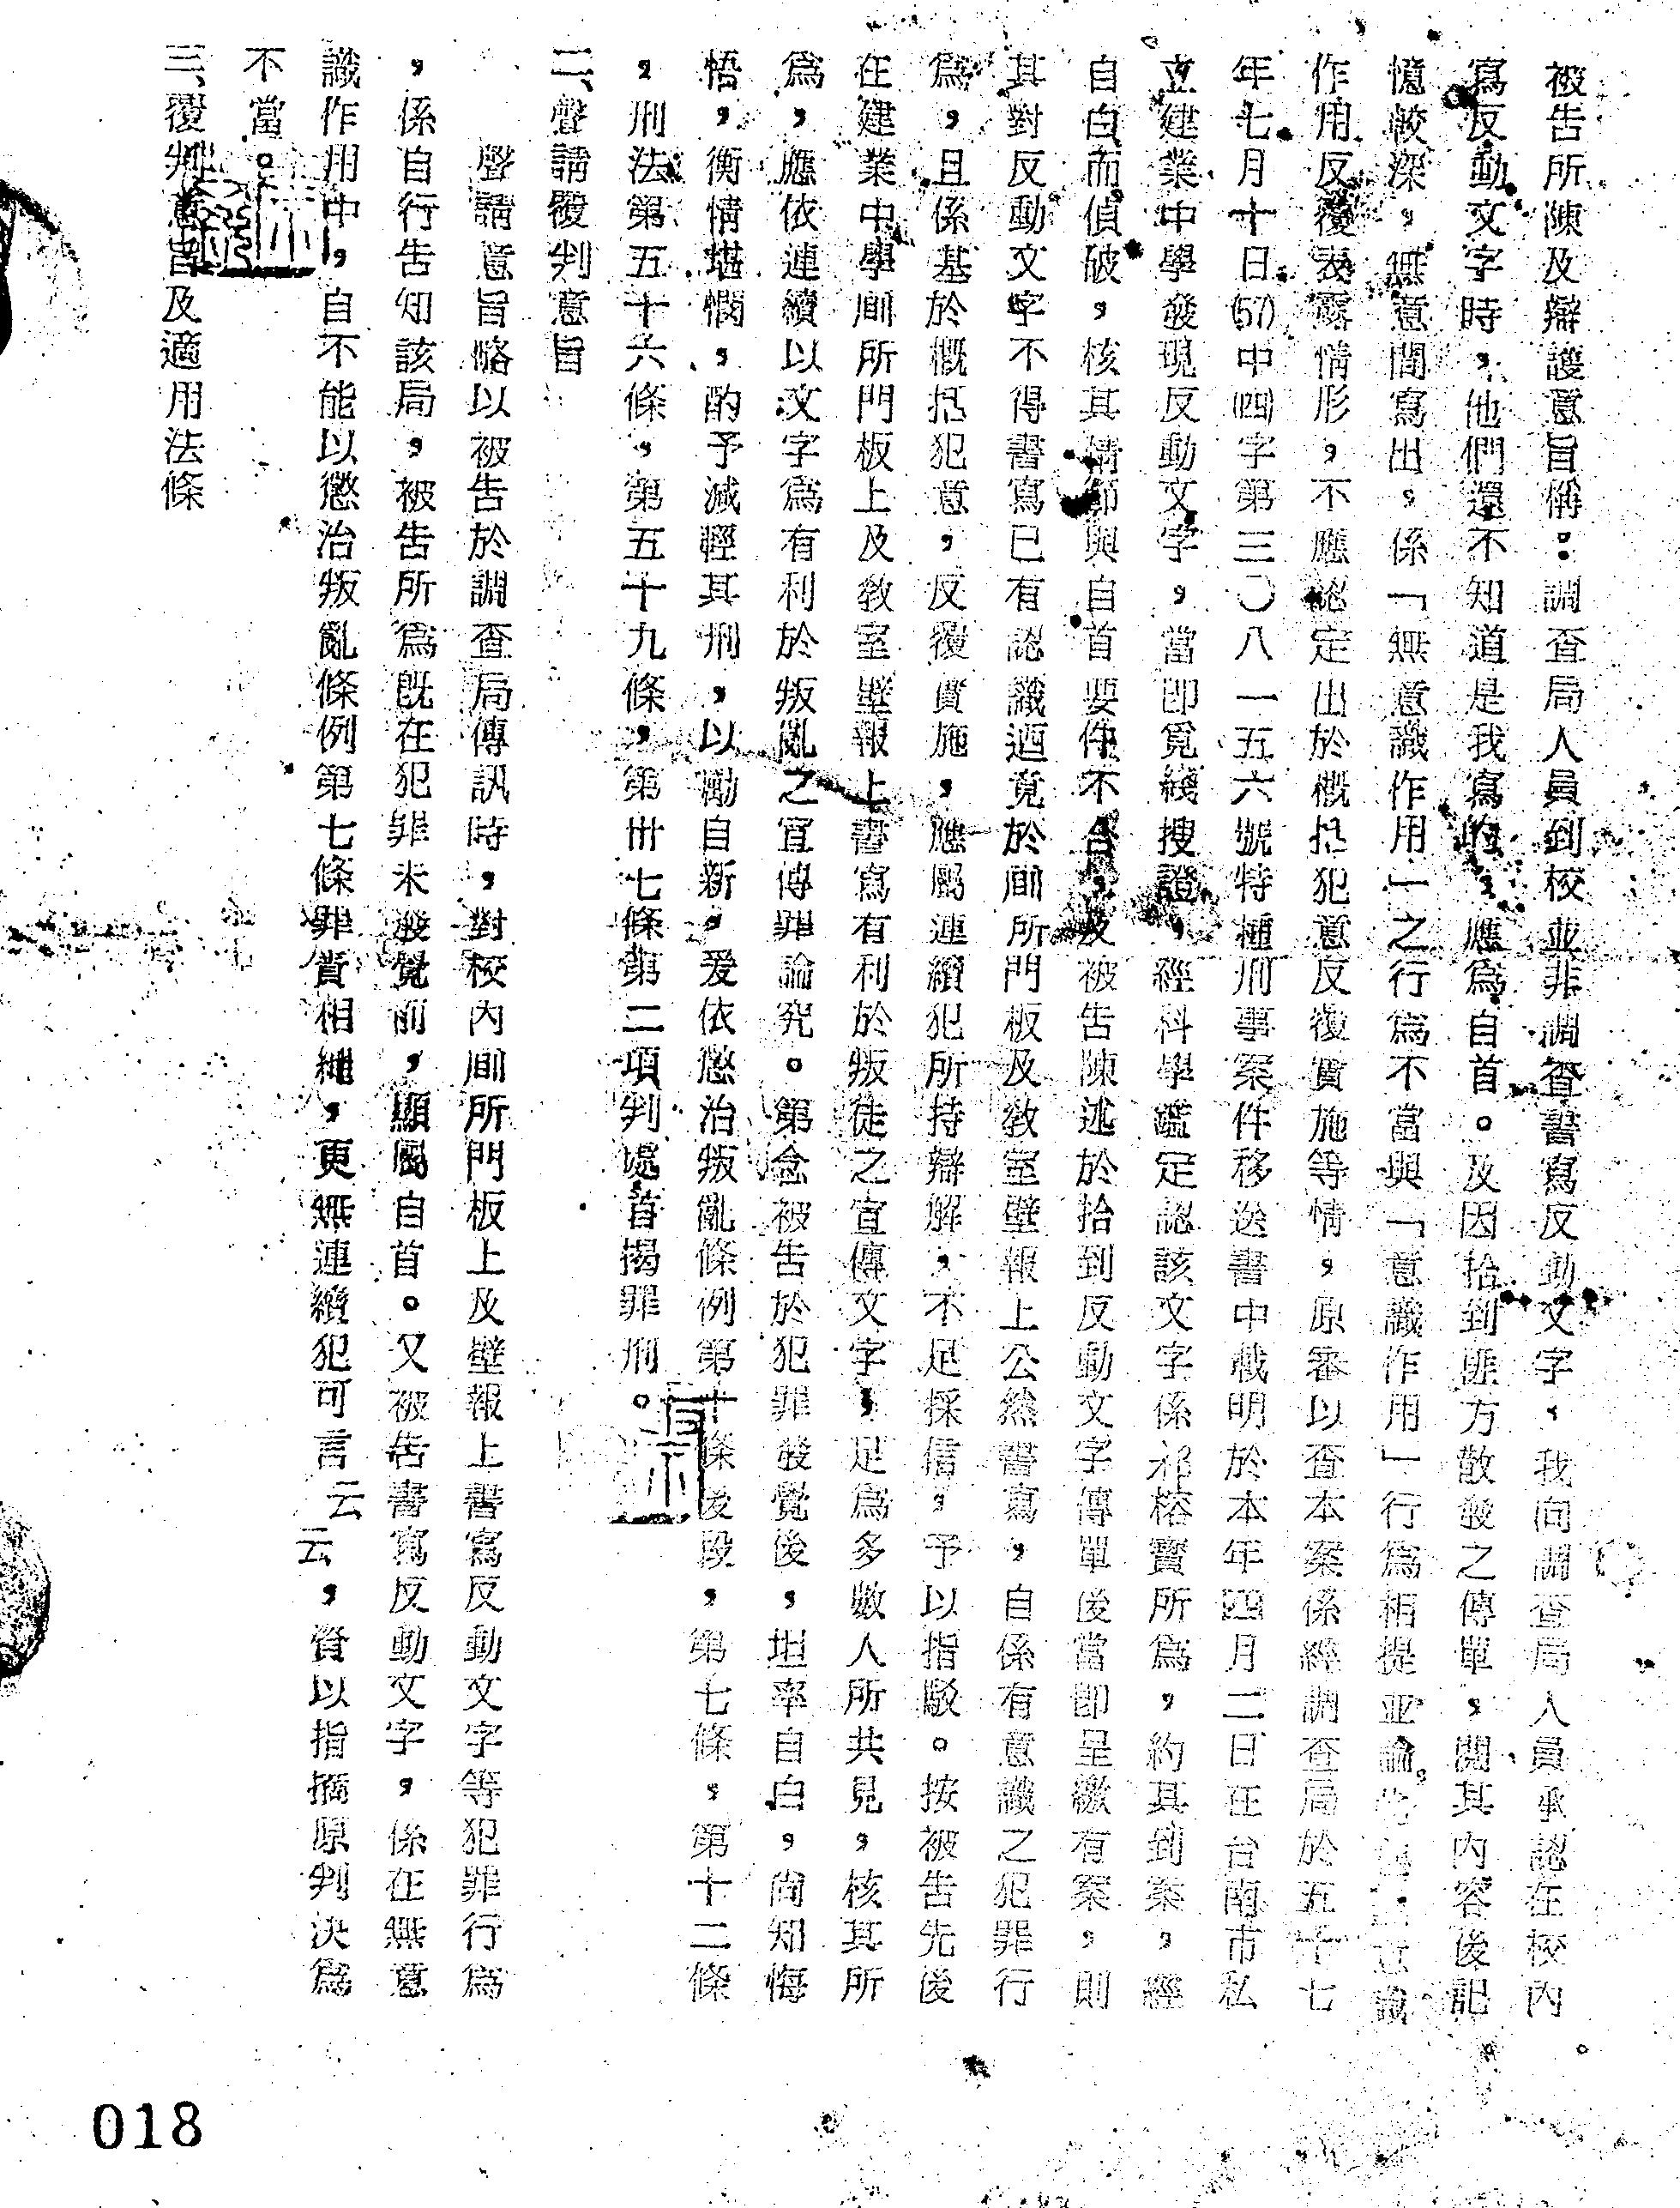 被告所陳及辯護意旨稱：調查局人員到校並非調查書寫反動文字，我向調查局人員承認在校內
寫反動文字時，他們還不知道是我寫的，應為自首。及因拾到匪方散發之傳單，閱其內容後記
憶較深，無意間寫出，係「無意識作用」之行為不當與「意識作用」行為相提並論。意識
作用反覆表露情形，不應認定出於概括犯意反復實施等情，原審以查本案係經調查局於五十七
年七月十日(57)中(四)字第三〇八一五六號特種刑事案件移送書中載明於本年四月二日在台南市私
立建業中學發現反動文字，當即覓綫搜證，經科學鑑定認該文字係祁榕寶所為，約其到案，經
自白而偵破，核其情節與自首要件不合，及被告陳述於拾到反動文字傳單後當即呈繳有案，則
其對反動文字不得書寫已有認識迺竟於廁所門板及教室壁報上公然書寫，自係有意識之犯罪行
為，且係基於概括犯意，反覆實施，應屬連續犯所持辯解，不足採信，予以指駁。按被告先後
在建業中學廁所門板上及教室壁報上書寫有利於叛徒之宣傳文字，足為多數人所共見，核其所
為，應依連續以文字為有利於叛亂之宣傳罪論究。第念被告於犯罪發覺後，坦率自白，尚知悔
悟，衡情堪憫，酌予減輕其刑，以勵自新，爰依懲治叛亂條例第十條後段，第七條，第十二條
，刑法第五十六條，第五十九條，第卅七條第二項判處首揭罪刑。
二、聲請覆判意旨
聲請意旨略以被告於調查局傳訊時，對校內廁所門板上及壁報上書寫反動文字等犯罪行為
，係自行告知該局，被告所為既在犯罪未發覺前，顯屬自首。又被告書寫反動文字，係在無意
識作用中，自不能以懲治叛亂條例第七條罪責相繩，更無連續犯可言云云，資以指摘原判決為
不當。
三、覆判意旨及適用法條
018